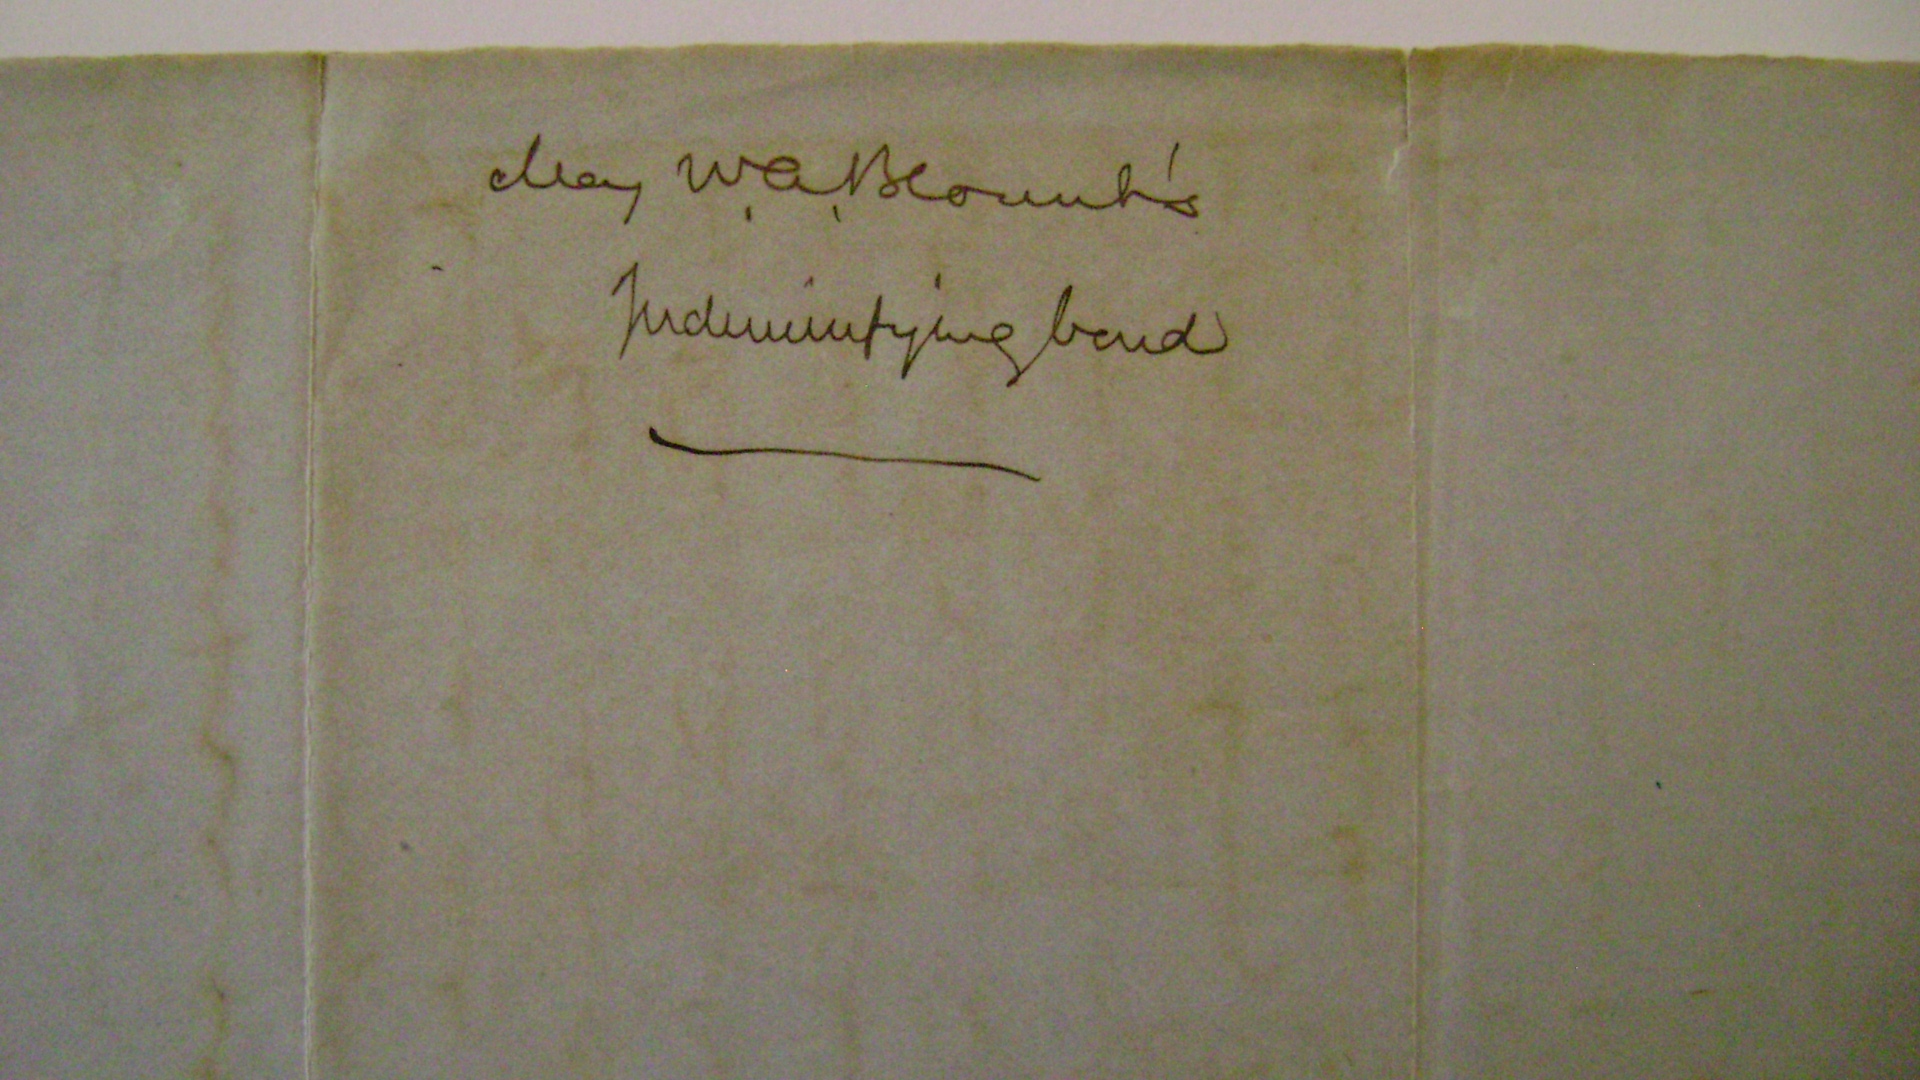 Maj W. A. Blount's
Indemnifying bond